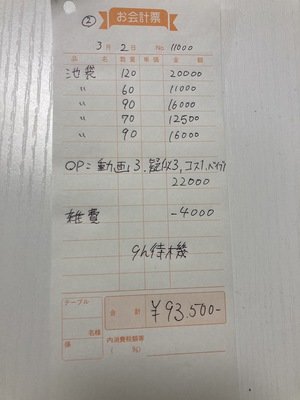 ②
お会計票
3月2日 No. 11000
品名 数量 単価 金額
池袋 120 20000
〃 60 11000
〃 90 16000
〃 70 12500
〃 90 16000
OP=動画3、疑似3、コス1、バイブ1
22000
雑費 -4000
9h待機
テーブル 合計 ¥93.500-
名様
係 内消費税額等
( %)